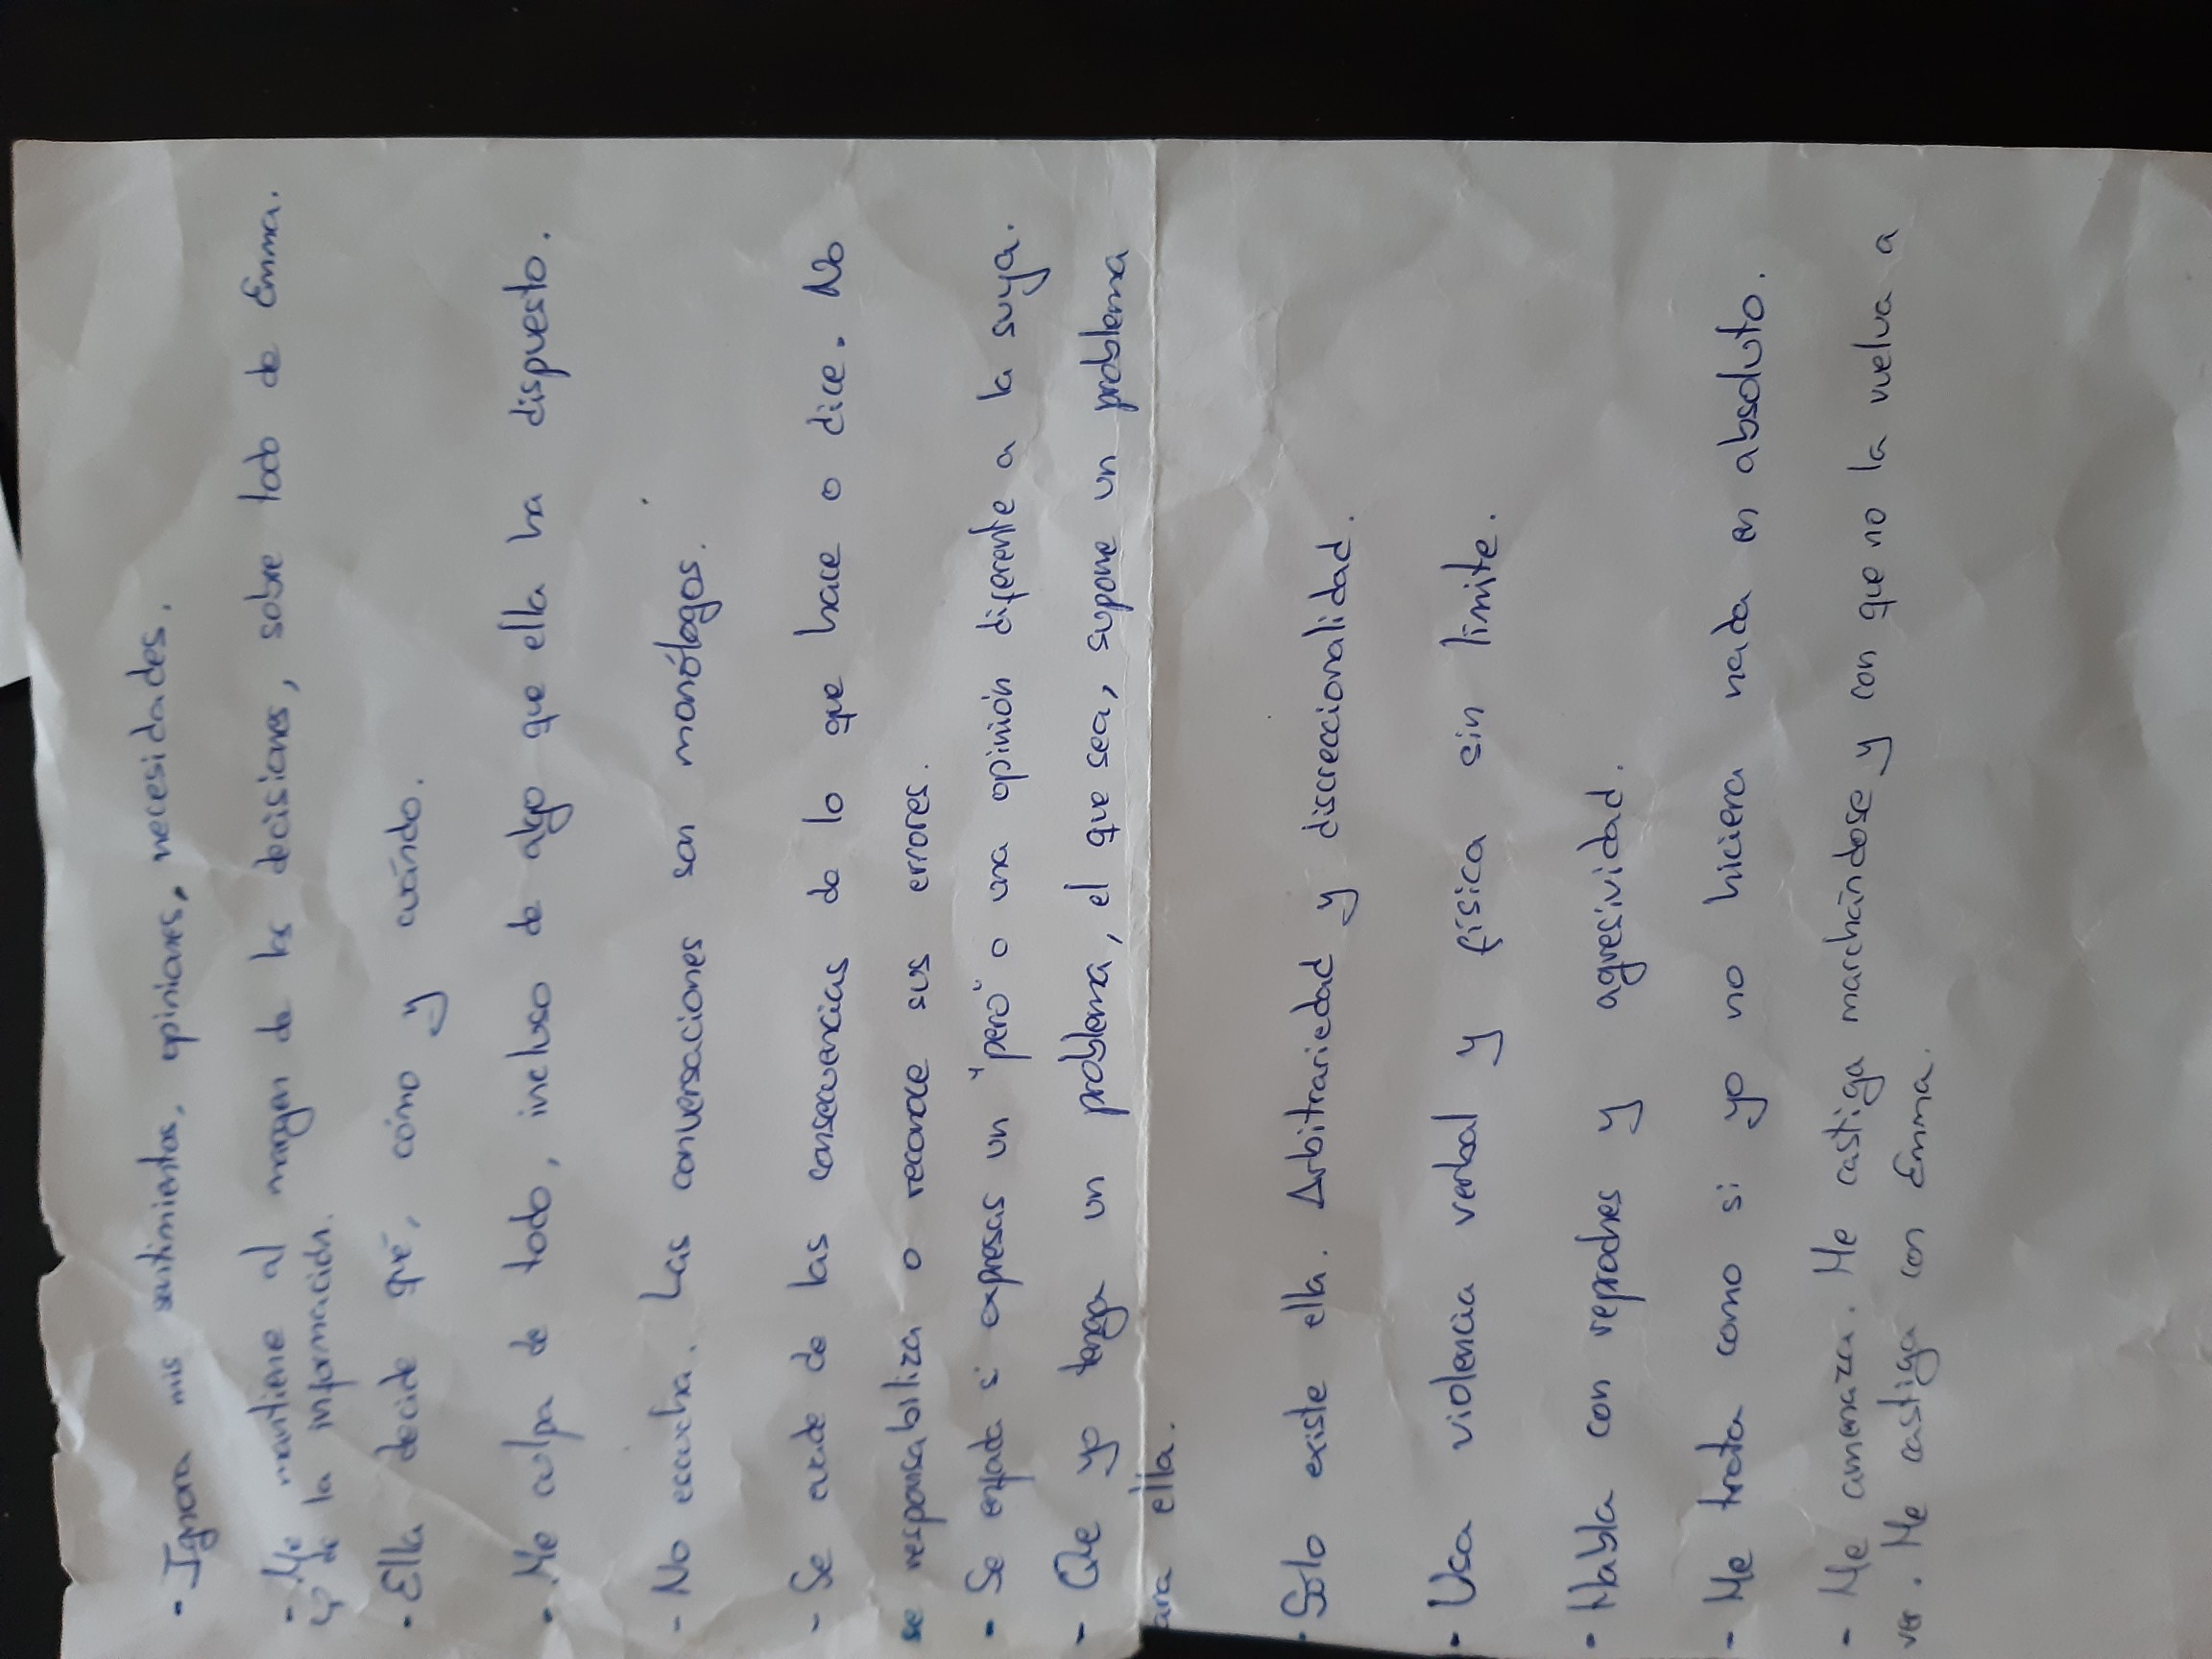 - Ignora mis sentimientos, opiniones, necesidades.
- Me mantiene al margen de las decisiones, sobre todo de Emma.
y de la información.
- Ella decide qué, cómo y cuándo.
- Me culpa de todo, incluso de algo que ella ha dispuesto.
- No escucha. Las conversaciones son monólogos.
- Se evade de las consecuencias de lo que hace o dice. No
se responsabiliza o reconoce sus errores.
- Se enfada si expresas un "pero" o una opinión diferente a la suya.
- Que yo tenga un problema, el que sea, supone un problema
ara ella.
- Solo existe ella. Arbitrariedad y discreccionalidad.
- Usa violencia verbal y física sin límite.
- Habla con reproches y agresividad.
- Me trata como si yo no hiciera nada en absoluto.
- Me amenaza. Me castiga marchándose y con que no la vuelva a
ver. Me castiga con Emma.